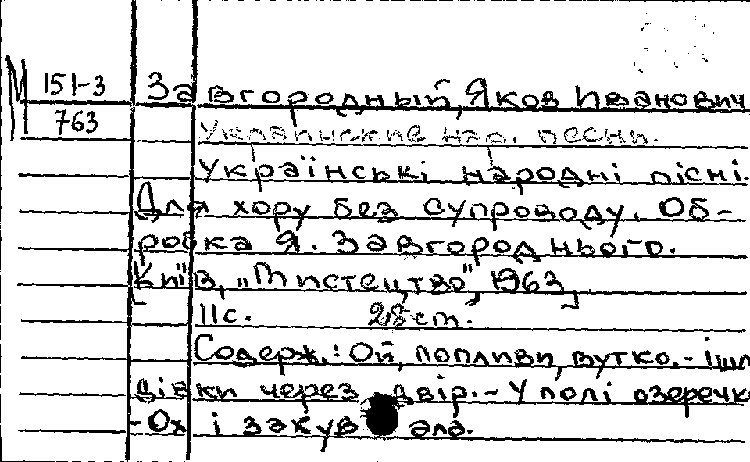 М 151-3
763
Завгородный, Яков Иванович
Украинские нар. песни.
Українські народні пісні.
Для хору без супроводу. Об-
робка Я. Завгороднього.
[Київ, „Мистецтво", 1963]
11с. 28 ст.
Содерж.: Ой, попливи, вутко. - Ішли
дівки через двір. - У полі озеречк
- Ох і закувала.